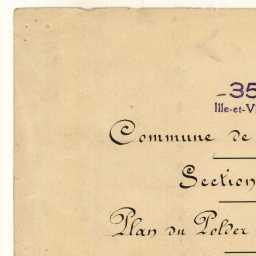 35
Ille-et-V
Commune de
Section
Plan du Polder